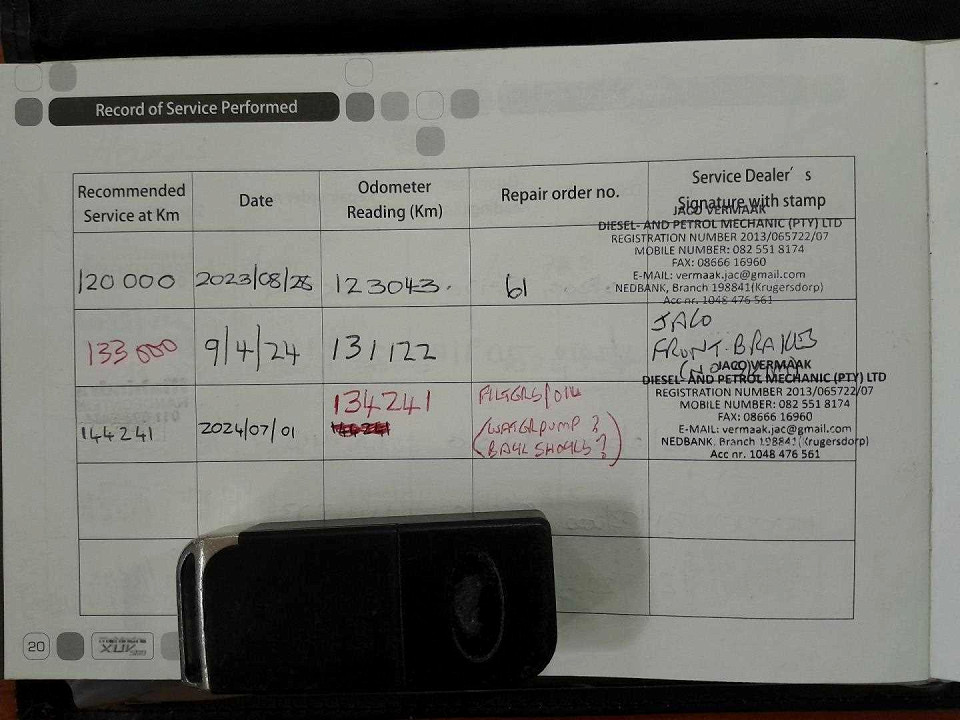 Record of Service Performed
Recommended Service at Km
Date
Odometer Reading (Km)
Repair order no.
Service Dealer's Signature with stamp
JACO VERMAAK
DIESEL- AND PETROL MECHANIC (PTY) LTD
REGISTRATION NUMBER 2013/065722/07
MOBILE NUMBER: 082 551 8174
FAX: 08666 16960
E-MAIL: vermaak.jac@gmail.com
NEDBANK, Branch 198841(Krugersdorp)
Acc nr. 1048 476 561
120 000 2023/08/28 123043. 61
133 000 9/4/24 131122
JACO
FRONT BRAKES
144241 2024/07/01
134241
FILTERS/OIL
(WATERPUMP ?
BACK SHOCKS ?)
JACO VERMAAK
DIESEL- AND PETROL MECHANIC (PTY) LTD
REGISTRATION NUMBER 2013/065722/07
MOBILE NUMBER: 082 551 8174
FAX: 08666 16960
E-MAIL: vermaak.jac@gmail.com
NEDBANK, Branch 198841(Krugersdorp)
Acc nr. 1048 476 561
20